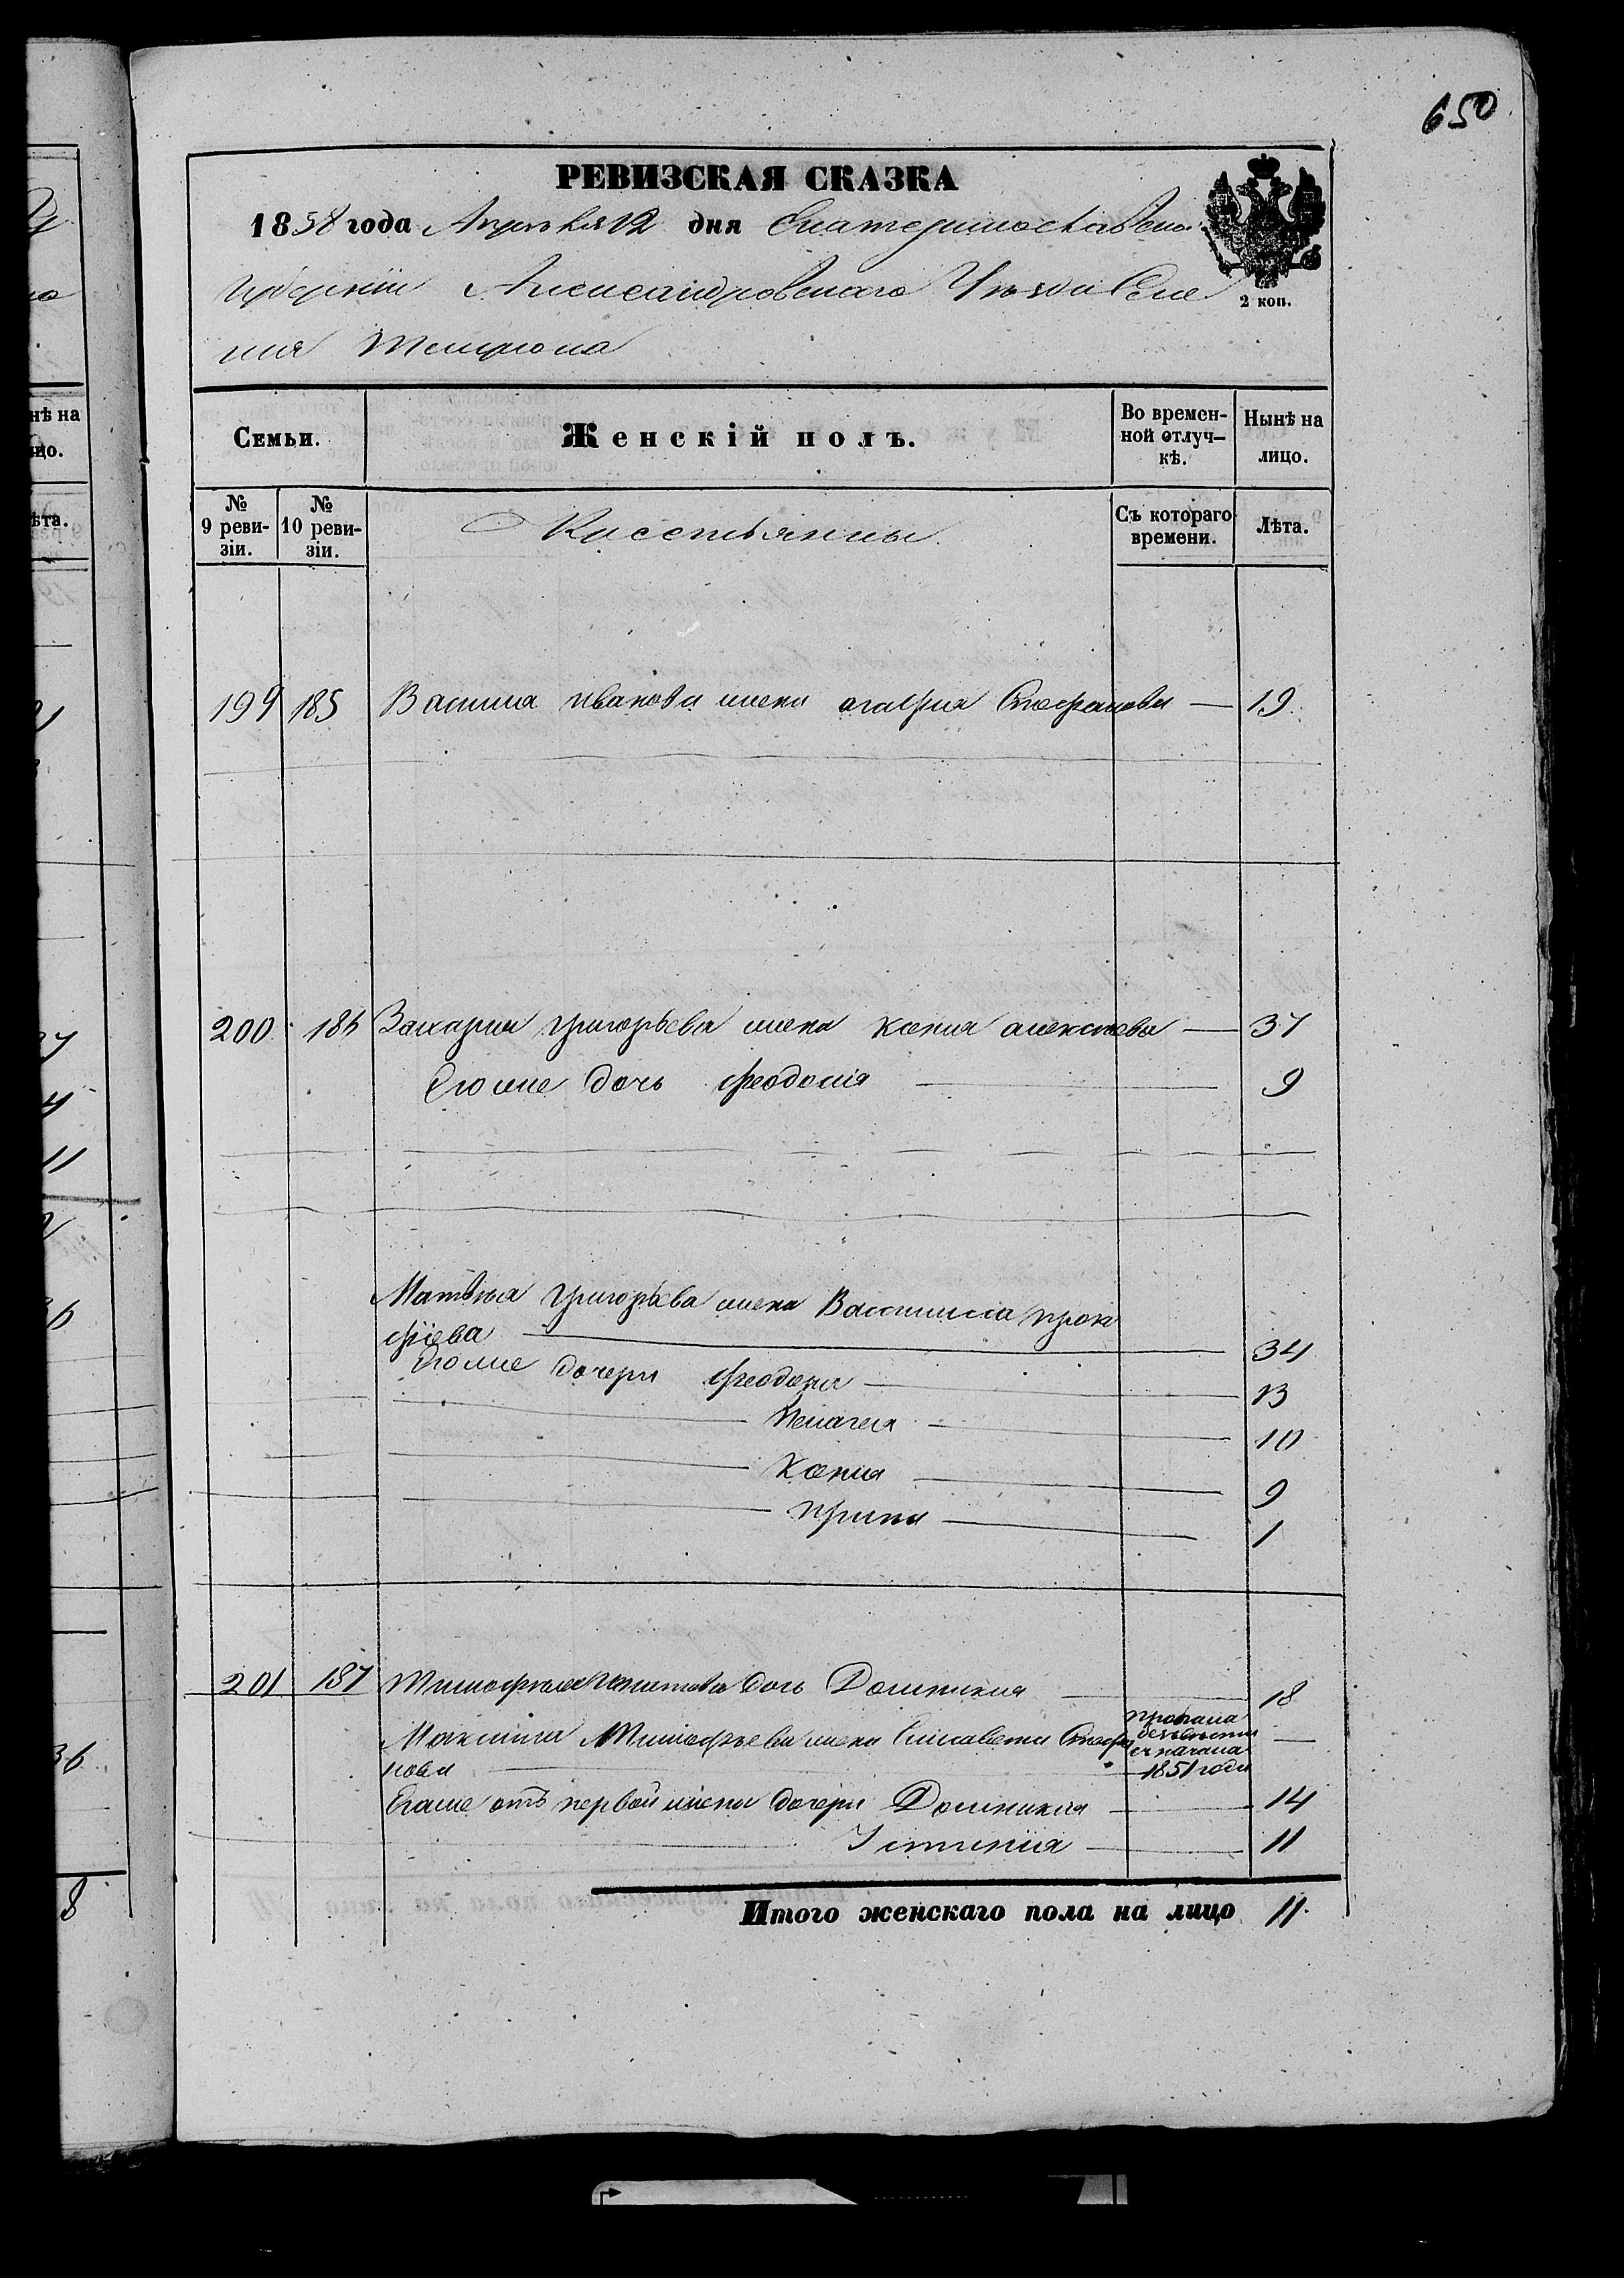 650
РЕВИЗСКАЯ СКАЗКА
1858 года Апреля 12 дня Екатеринославской
Губернии Александровского Уезда Селе
ния
2 коп.
Семьи.
Женскій полъ.
Во времен-
ной отлуч-
кѣ.
Нынѣ на
лицо.
№
9 реви-
зіи.
№
10 реви-
зіи.
Съ котораго
времени.
Лѣта.
199 185 Василия Иванова жена Агафия Стефанова — 19
200 186 Захария Григорьева жена Ксения Алексеева — 37
Его же дочь Феодосия 9
Матвея Григорьева жена Васс Прок
фиева 34
Его же дочери Феодосия 13
Пелагея 10
Ксения 9
Ирина 1
201 187 Тимофея дочь Домникия 18
Максима Тимофеева жена Елисавета Стефа
нова
пропала
безвестно
с начала
1851 года
—
Егоже отъ первой жены дочери Домникия 14
Устиния 11
Итого женскаго пола на лицо 11